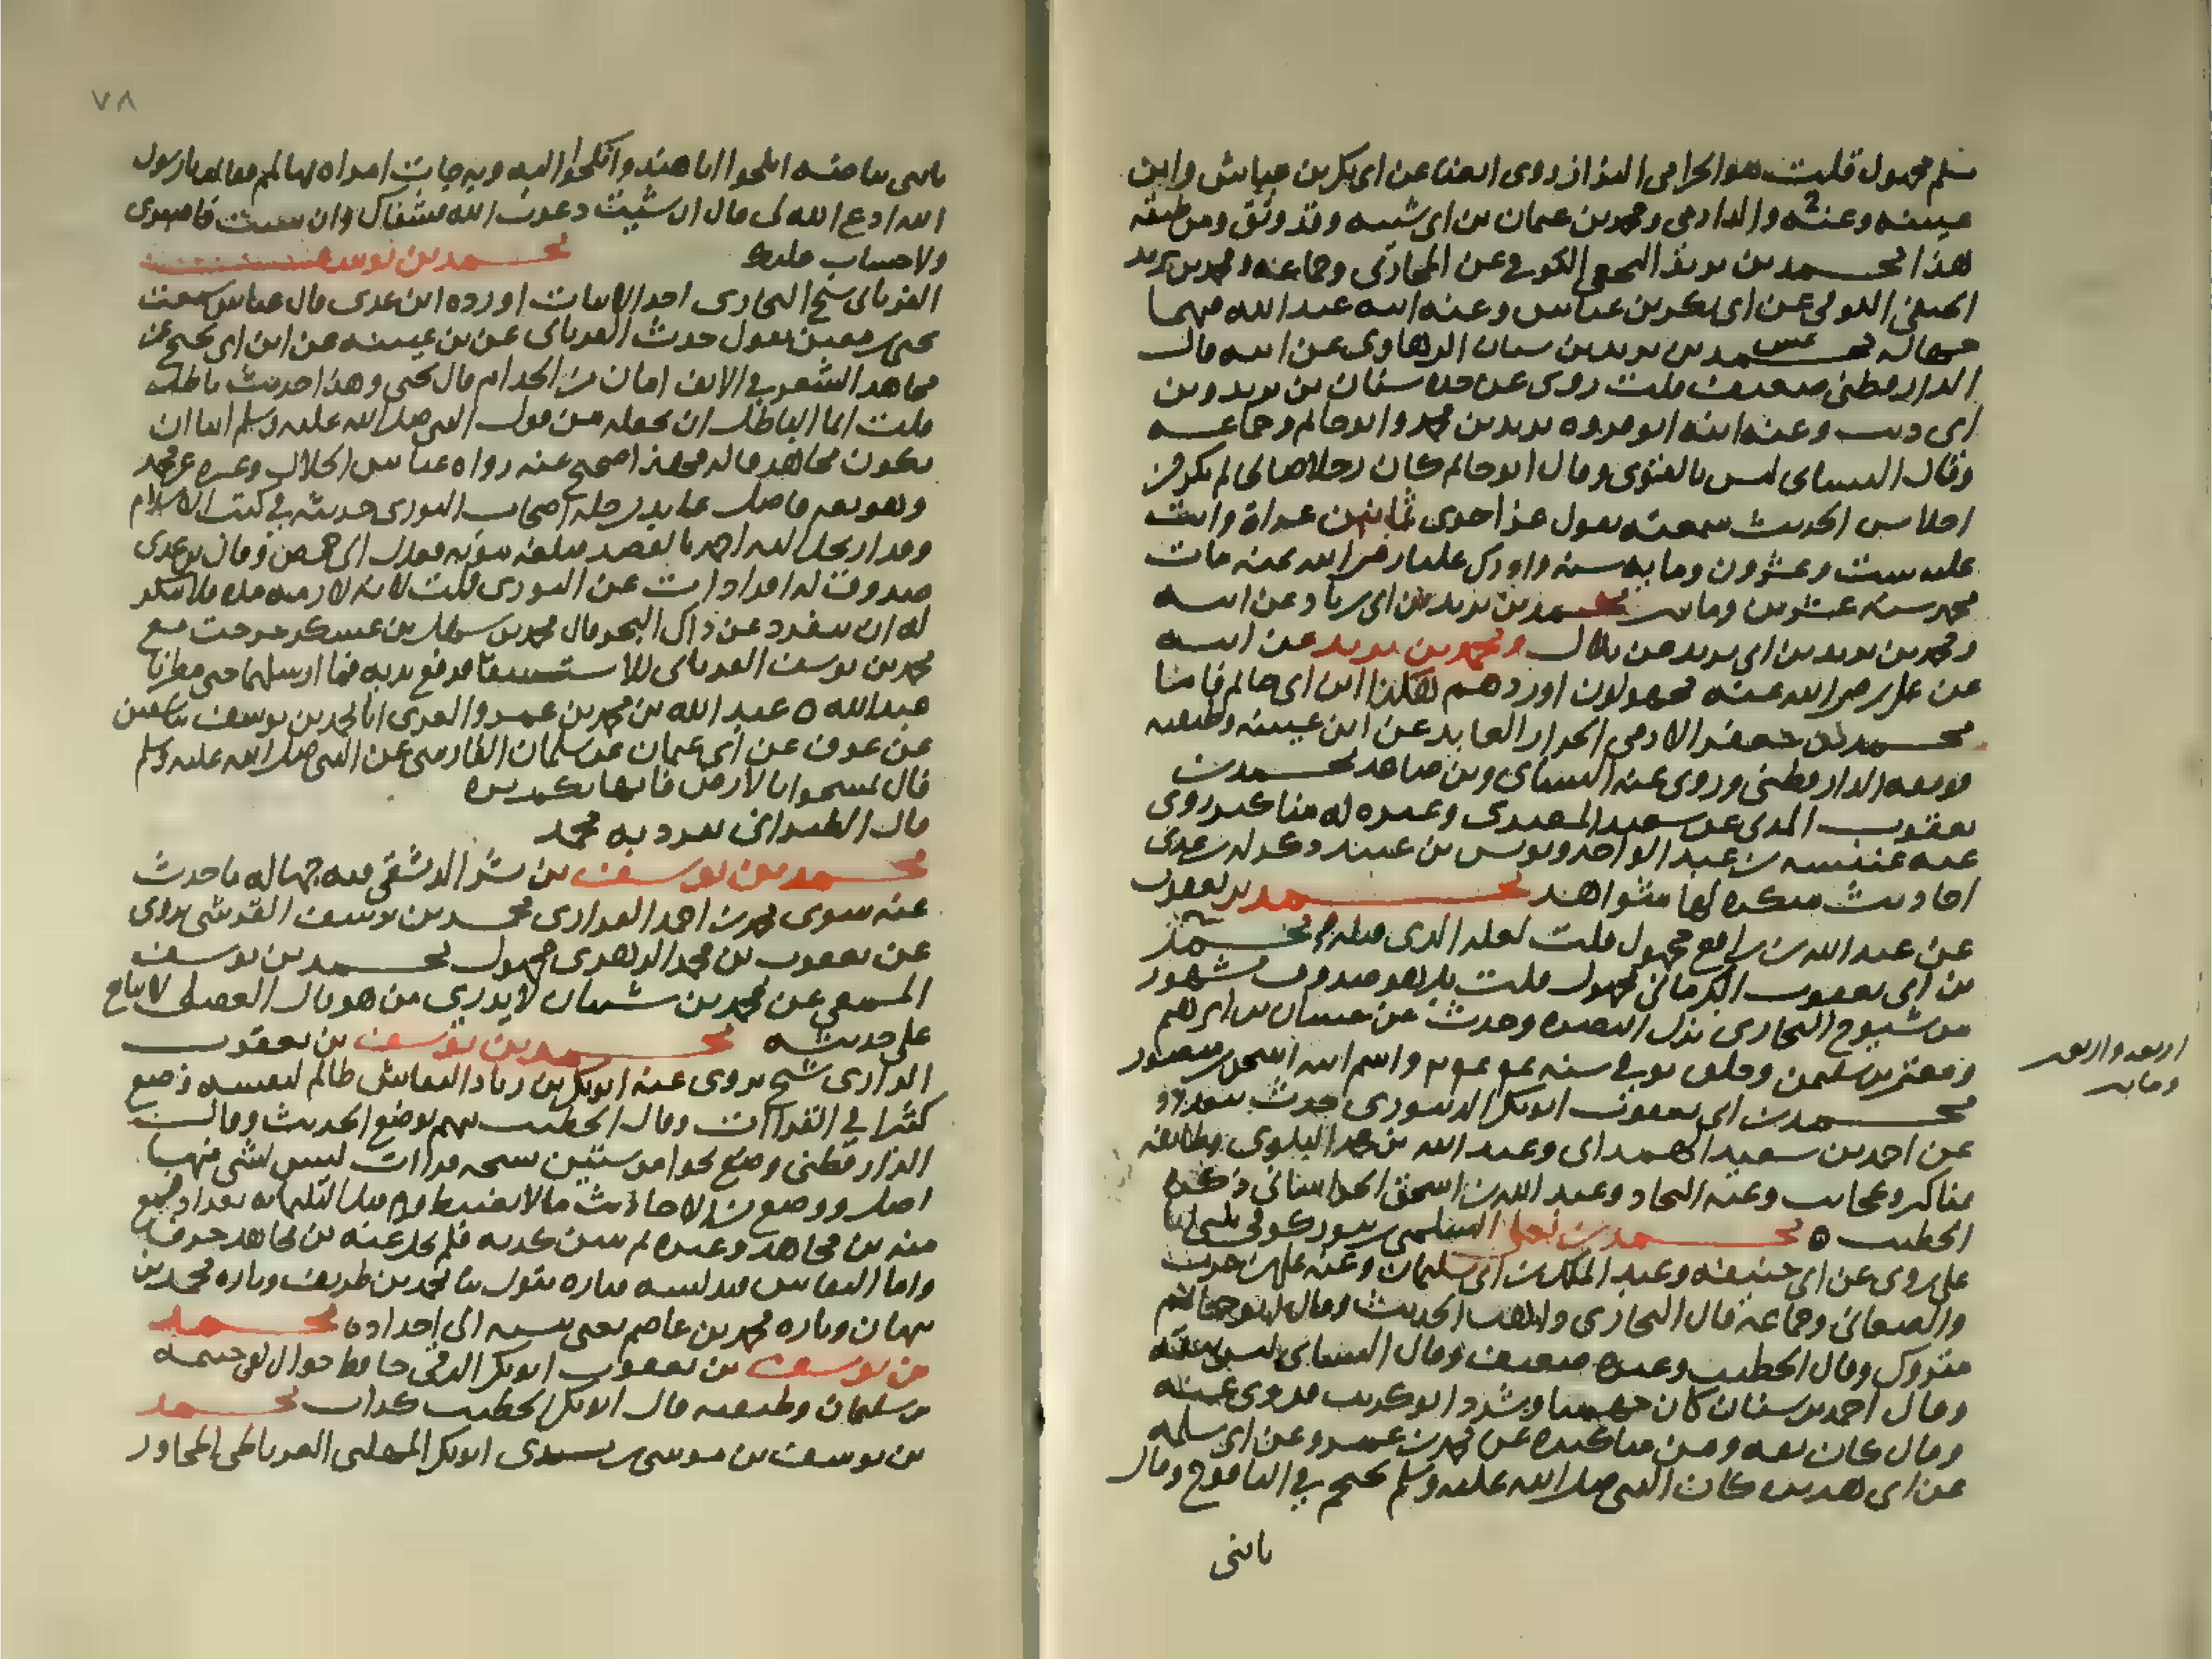 سلم مجهول قلت هو الحزامي البزاز روى ايضا عن ابي بكر بن عياش وابن
عيينة وعنه والدارمي ومحمد بن عثمان بن ابي شيبه وقد وثق ومن طبقة
هذا محمد بن يزيد النخعي الكوفي عن المحاربي وجماعه ومحمد بن يزيد
الحنفي الكوفي عن ابي بكر بن عياش وعنه ابنه عبد الله فيهما
جهاله محمد بن يزيد بن سنان الرهاوي عن ابيه قال
الدارقطني ضعيف قلت روى عن جده سنان بن يزيد وبن
ابي ذيب وعنه ابنه ابو فروه يزيد بن محمد وابو حاتم وجماعه
وقال النسائي ليس بالقوي وقال ابو حاتم كان رجلا صالحا لم يكن من
احلاس الحديث سمعته يقول
عليه ست وعشرون ومايه سنه وادرك عليا رضي الله عنه مات
محمد سنة عشرين ومايتين محمد بن يزيد بن ابي زياد عن ابيه
ومحمد بن يزيد بن ابي يزيد عن بلال ومحمد بن يزيد عن ابيه
عن علي رضي الله عنه مجهولون اوردهم هكذا ابن ابي حاتم فاما
محمد بن يزيد الادمي الخراز العابد عن ابن عيينة وطبقته
فوثقه الدارقطني وروى عنه النسائي وبن صاعد محمد بن
يعقوب المدني عن سعيد المقبري وغيره له مناكير روى
عنه عنبسه بن عبد الواحد ويونس بن عبيد ذكر له بن عدي
احاديث منكره لها شواهد محمد بن يعقوب
عن عبد الله بن رافع مجهول قلت لعله الذي قبله محمد
بن ابي يعقوب الكرماني مجهول قلت بل هو صدوق مشهور
من شيوخ البخاري نزل البصره وحدث عن حسان بن ابرهيم
ومعتمر بن سليمن وخلق توفي سنه واسم ابيه اسحق بن منصور
اربعه واربعين
ومايتين
محمد بن ابي يعقوب ابو بكر الدينوري حدث
عن احمد بن سعيد الهمداني وعبد الله بن محمد البلوي وطائفه
مناكير وعجائب وعنه النجاد وعبد الله بن اسحق الخراساني ذكره
الخطيب ه محمد بن يعلى السلمي زنبور كوفي يكنى ابا
علي روى عن ابي حنيفه وعبد الملك بن ابي سليمان وعنه علي بن حرب
والصغاني وجماعة قال البخاري ذاهب الحديث وقال ابو حاتم
متروك وقال الخطيب وغيره ضعيف وقال النسائي ليس بثقة
وقال احمد بن سنان كان جهميا وشذ ابو كريب فروى عنه
وقال كان ثقه ومن مناكيره عن محمد بن عمرو عن ابي سلمه
عن ابي هريره كان النبي صلى الله عليه وسلم يحتجم في اليافوخ وقال
يابني
٧٨
يابني بياضه انكحوا ابا هند وانكحوا اليه وبه جات امراه بها لمم فقالت يا رسول
الله ادع الله لي قال ان شيت دعوت الله فشفاك وان شيت فاصبري
ولا حساب عليك محمد بن يوسف
الفريابي شيخ البخاري احد الاثبات اورده ابن عدي قال عباس سمعت
يحيى بن معين يقول حدث الفريابي عن بن عيينه عن ابن ابي نجيح عن
مجاهد الشعر في الانف امان من الجذام قال يحيى وهذا حديث باطل
قلت انما الباطل ان يجعله من قول النبي صلى الله عليه وسلم اما ان
يكون مجاهد قاله فهذا صحيح عنه رواه عباس الخلال وغيره عن محمد
وهو ثقه فاضل عابد من جلة اصحاب الثوري حديثه في كتب الاسلام
وقد ارتحل اليه احمد بالقصد فبلغه موته فعدل الى حمص وقال بن عدي
صدوق له افرادات عن الثوري قلت لانه لازمه مده فلا ينكر
له ان ينفرد عن ذاك البحر قال محمد بن سهل بن عسكر خرجت مع
محمد بن يوسف الفريابي للاستسقا فرفع يديه فما ارسلهما حتى مطرنا
عبد الله ه عبد الله بن محمد بن عمرو الغزي انا محمد بن يوسف نا سفين
عن عوف عن ابي عثمان عن سلمان الفارسي عن النبي صلى الله عليه وسلم
قال تمسحوا بالارض فانها بكم بره
قال الطبراني تفرد به محمد
محمد بن يوسف بن بشر الدمشقي فيه جهاله ما حدث
عنه سوى محمد بن احمد محمد بن يوسف القرشي يروي
عن يعقوب بن محمد الزهري مجهول محمد بن يوسف
المسمعي عن محمد بن شيبان لا يدري من هو قال العقيلي لا يتابع
على حديثه محمد بن يوسف بن يعقوب
الرازي شيخ يروي عنه ابو بكر بن زياد النقاش ظالم لنفسه وضع
كثيرا في القراات وقال الخطيب يتهم بوضع الحديث وقال
الدارقطني وضع نحوا من ستين نسخه قراات ليس لشي منها
اصل ووضع من الاحاديث ما لا يضبط قدم قبل الثلثمايه بغداد فسمع
منه بن مجاهد وغيره ثم تبين كذبه فلم يحك عنه بن مجاهد حرفا
واما النقاش فدلسه فتاره يقول نا محمد بن طريف وتاره محمد بن
نبهان وتاره محمد بن عاصم يعني ينسبه الى اجداده محمد
بن يوسف بن يعقوب ابو بكر الرقي حافظ جوال لقي خيثمه
بن سليمان وطبقته قال ابو بكر الخطيب كذاب محمد
بن يوسف بن موسى بن مسدي ابو بكر المهلبي الغرناطي المجاور